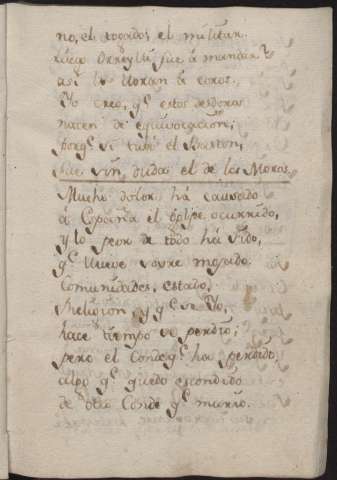 no, el togado; el militar.
luego Orreylli fue á mandar
asi lo lloran à coros.
Yo creo, qe estos desdoros
nacen de equivocacion;
porqe se tubo el Baston,
fue sin duda el de los Moros.
Mucho dolor ha causado
a España el golpe ocurrido,
y lo peor de todo ha sido,
qe llueve sovre mojado
Comunidades, estado,
Religion, y qe se Yo,
hace tiempo se perdio;
pero el Conde qe hoy perdido
algo qe quedo escondido
de otro Conde qe murio.